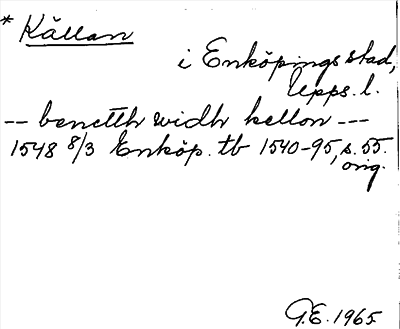 * Källan
i Enköpings stad,
Upps. l.
-- benetth widh kellon ---
1548 8/3 Enköp. tb 1540-95, s. 55.
orig.
G.E. 1965